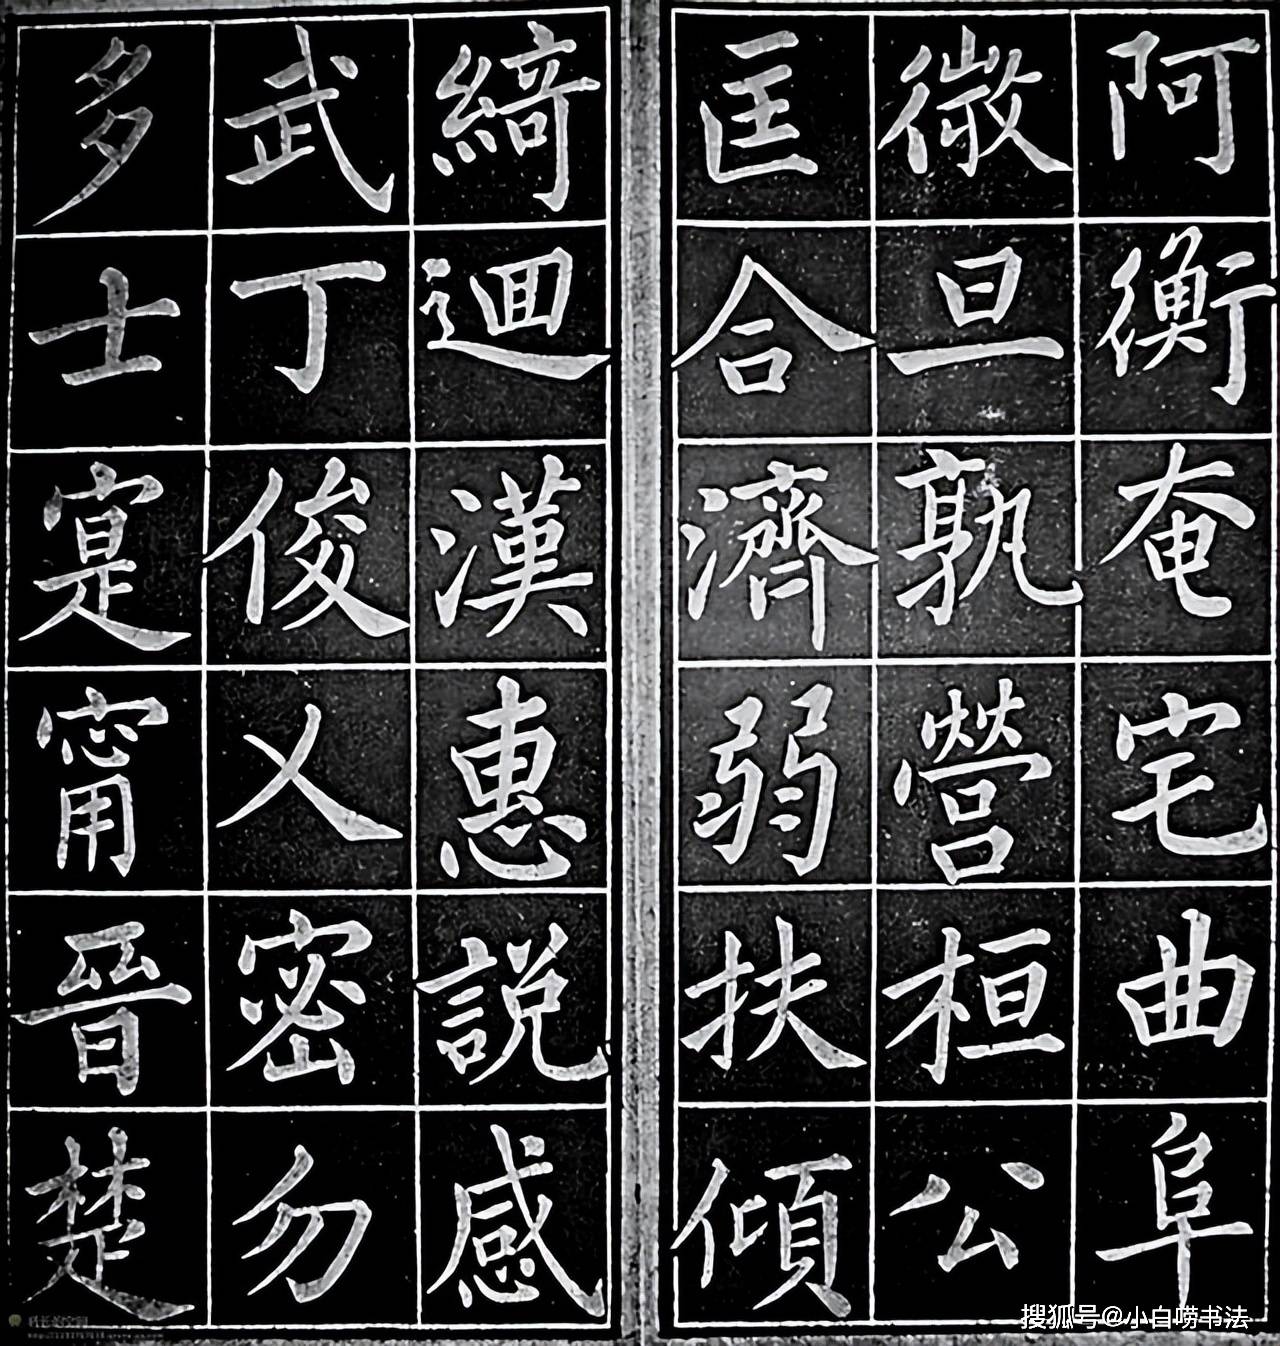 阿衡奄宅曲阜
微旦孰營桓公
匡合濟弱扶傾
綺迴漢惠説感
武丁俊乂密勿
多士寔甯晉楚
搜狐号@小白唠书法